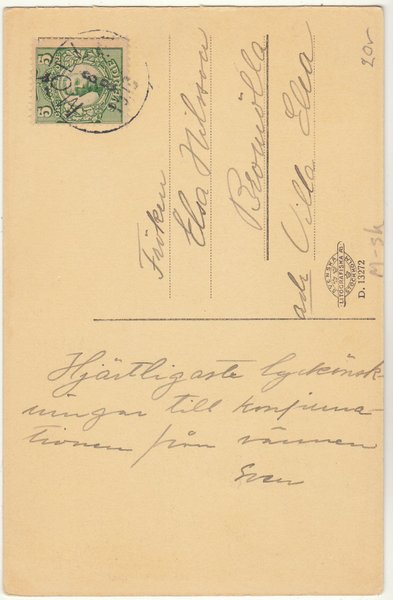 Fröken
Elsa Nilsson
Bromölla
adr Villa Elsa
20:-
M-sk
SVENSKA
LITOGRAFISKA AB
STOCKHOLM
D. 13272
5
5
Hjärtligaste lyckönsk-
ningar till konfirma-
tionen från vännen
Sven